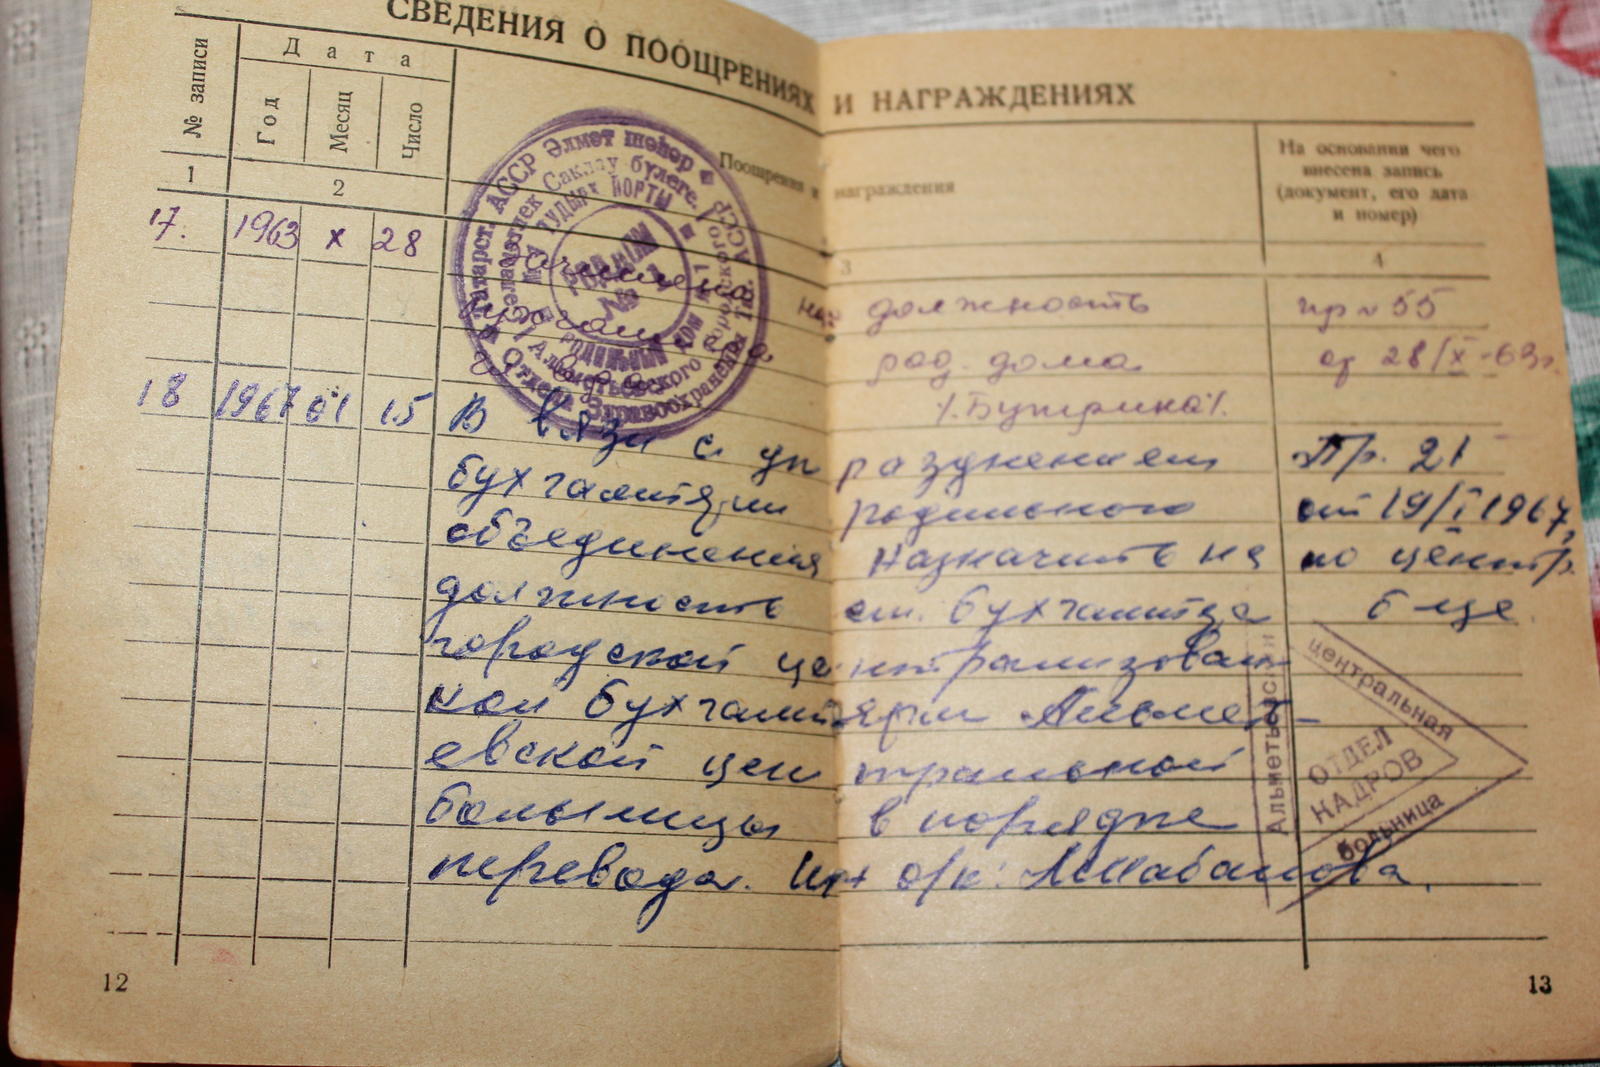 СВЕДЕНИЯ О ПООЩРЕНИЯХ И НАГРАЖДЕНИЯХ
№ записи
Дата
Год
Месяц
Число
Поощрения и награждения
На основании чего
внесена запись
(документ, его дата
и номер)
1
2
3
4
17. 1963 X 28 Зачислена на должность пр № 55
род. дома от 28/X-63г.
18 1967 01 15 В связи с упразднением Пр. 21
бухгалтерии родильного от 19/I 1967,
объединения назначить на по центр.
должность ст. бухгалтера б-це
городской централизован
ной бухгалтерии Альметь-
евской центральной
больницы в порядке
перевода.
Татарст. АССР Әлмәт шәһәр
Сәламәтлек Саклау бүлеге
ЙОРТЫ
РОДИЛЬНЫЙ ДОМ № 1
Отдела Здравоохранения Тат. АССР
Альметьевского городского
Альметьевская
центральная
больница
ОТДЕЛ
КАДРОВ
12
13